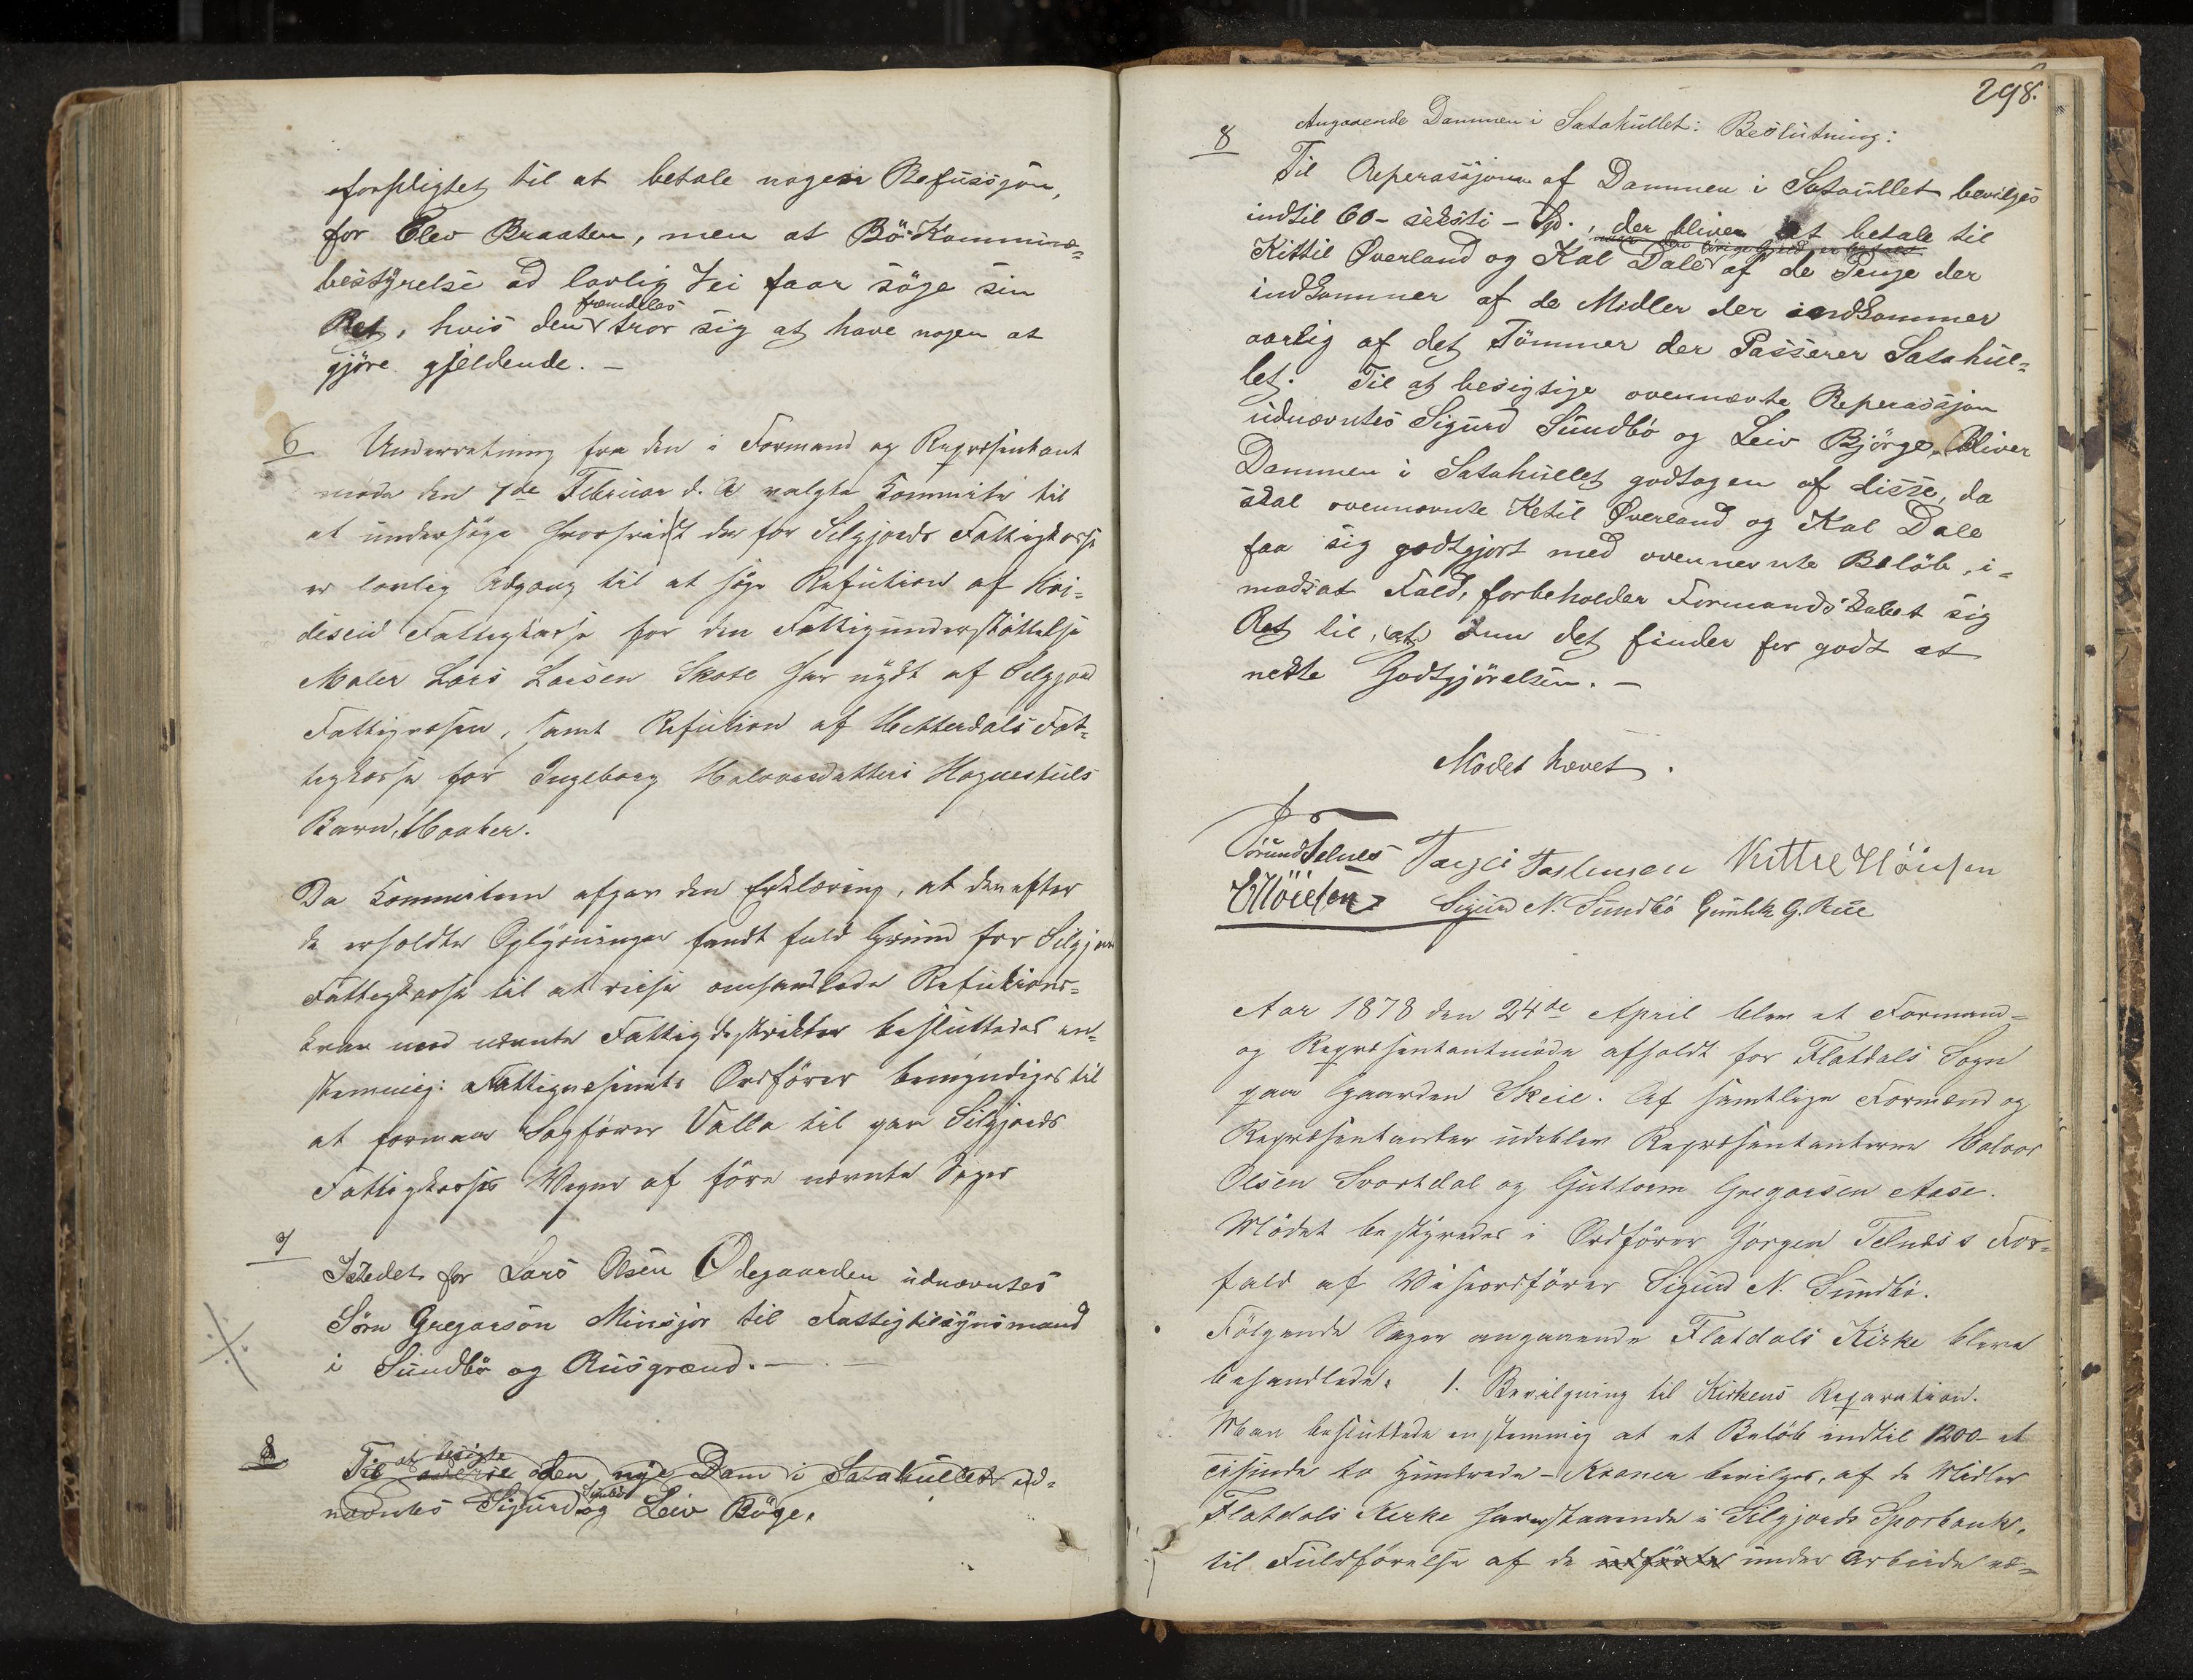 forpligtet til at betale nogen Refussjon,
for Elev Braaten, men at Bö Kommune=
bestyrelse ad lovlig Vei faar söge sin
Ret, hvis den fremdeles tror sig at have nogen at
gjöre gjeldende. –
6 Underretning fra den i Formand og Repræsentant
møde den 7de Februar d. A. valgte Kommite til
at undersöge hvorvidt der for Silgjords Fattigkasse
er lovlig Adgang til at söge Refution af Hvi=
deseid Fattigkasse for den Fattigunderstöttelse
Maler Lars Larsen Skate har nydt af Silgjord
Fattigvæsen, samt Refution af Hitterdals Fat=
tigkasse for Ingeborg Halvorsdatters Hognestuls
Barn, Haaker.
Da Kommiteen afgav den Erklæring, at den efter
de erholdte Oplysninger fandt fuld Grund for Silgjord
Fattigkasse til at reise omhandlede Refutions=
krav mod nævnte Fattigdistrikter besluttedes en=
stemmig: Fattigvæsenets Ordförer bemyndiges til
at formaa Sagförer Valla til paa Silgjords
Fattigkasses Vegne at före nævnte Sager
7
Istedet for Lars Olsen Ödegaarden udnævntes
Sörn Gregarson Minsjor til Fattigtilsynsmand
i Sundbö og Rusgrænd. –
8 Til at besigte den nye Dam i Satahullet ud=
nævntes Sigurd Sundbö og Leiv Böge.
298.
8 Angaaende Dammen i Satahullet: Beslutning:
Til Reperassjonen af Dammen i Satahullet bevilges
indtil 60 – seksti – Sp., der bliver at betale til
naar den övrige Gjæld er betalt
Kittil Øverland og Kal Dale af de Penge der
indkommer af de Midler der indkommer
aarlig af det Tömmer der Passerer Satahul=
let. Til at besigtige ovennævnte Reperassjon
udnævntes Sigurd Sundbö og Leiv Björge. Bliver
Dammen i Satahullet godtagen af disse, da
skal ovennævnte Ketil Øverland og Kal Dale
faa sig godtgjort med ovennevnte Belöb, i=
modsat Fald, forbeholder Formandskabet sig
Ret til, at om det finder for godt at
nekte Godtgjörelsen. –
Mödet hævet.
Tarjei Taslensen Kittil Höusen
Sigurd N. Sundbö Gunlik G. Rue
Aar 1878 den 24de April blev et Formand=
og Repræsentantmöde afholdt for Flatdals Sogn
paa Gaarden Skeie. Af samtlige Formænd og
Repræsentanter udeblev Repræsentanterne Halvor
Olsen Svartdal og Guttorm Gregarsen Aase.
Mödet bestyredes i Ordförer Jörgen Telnes's For=
fald af Viseordförer Sigurd N. Sundbö.
Fölgende Sager angaaende Flatdals Kirke bleve
behandlede: 1. Bevilgning til Kirkens Reparation.
Man besluttede enstemmig at et Belöb indtil 1200 – et
Tusinde to Hundrede – Kroner bevilges, af de Midler
Flatdals Kirke har indestaaende i Silgjords Sparbank,
til Fuldförelse af de udförte under Arbeide væ=